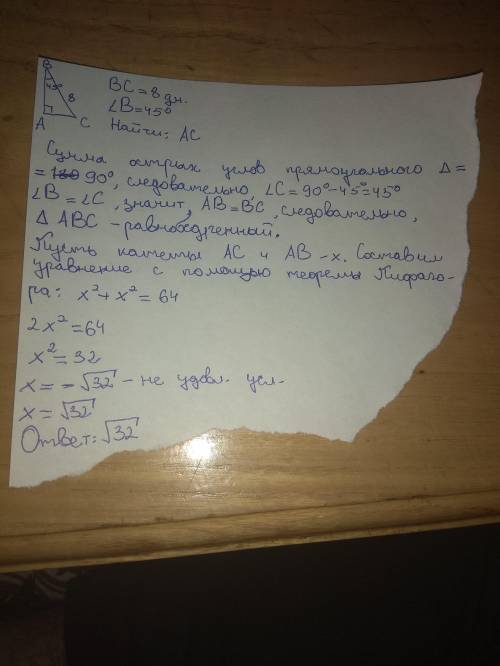 B
45°
8
A
C
BC = 8 дм.
∠B = 45°
Найти: AC
Сумма острых углов прямоугольного Δ =
= 180 90°, следовательно, ∠C = 90° - 45° = 45°
∠B = ∠C, значит, AB = BC, следовательно,
Δ ABC - равнобедренный.
Пусть катеты AC и AB - x. Составим
уравнение с помощью теоремы Пифаго-
ра: x² + x² = 64
2x² = 64
x² = 32
x = - √32 - не удовл. усл.
x = √32
Ответ: √32